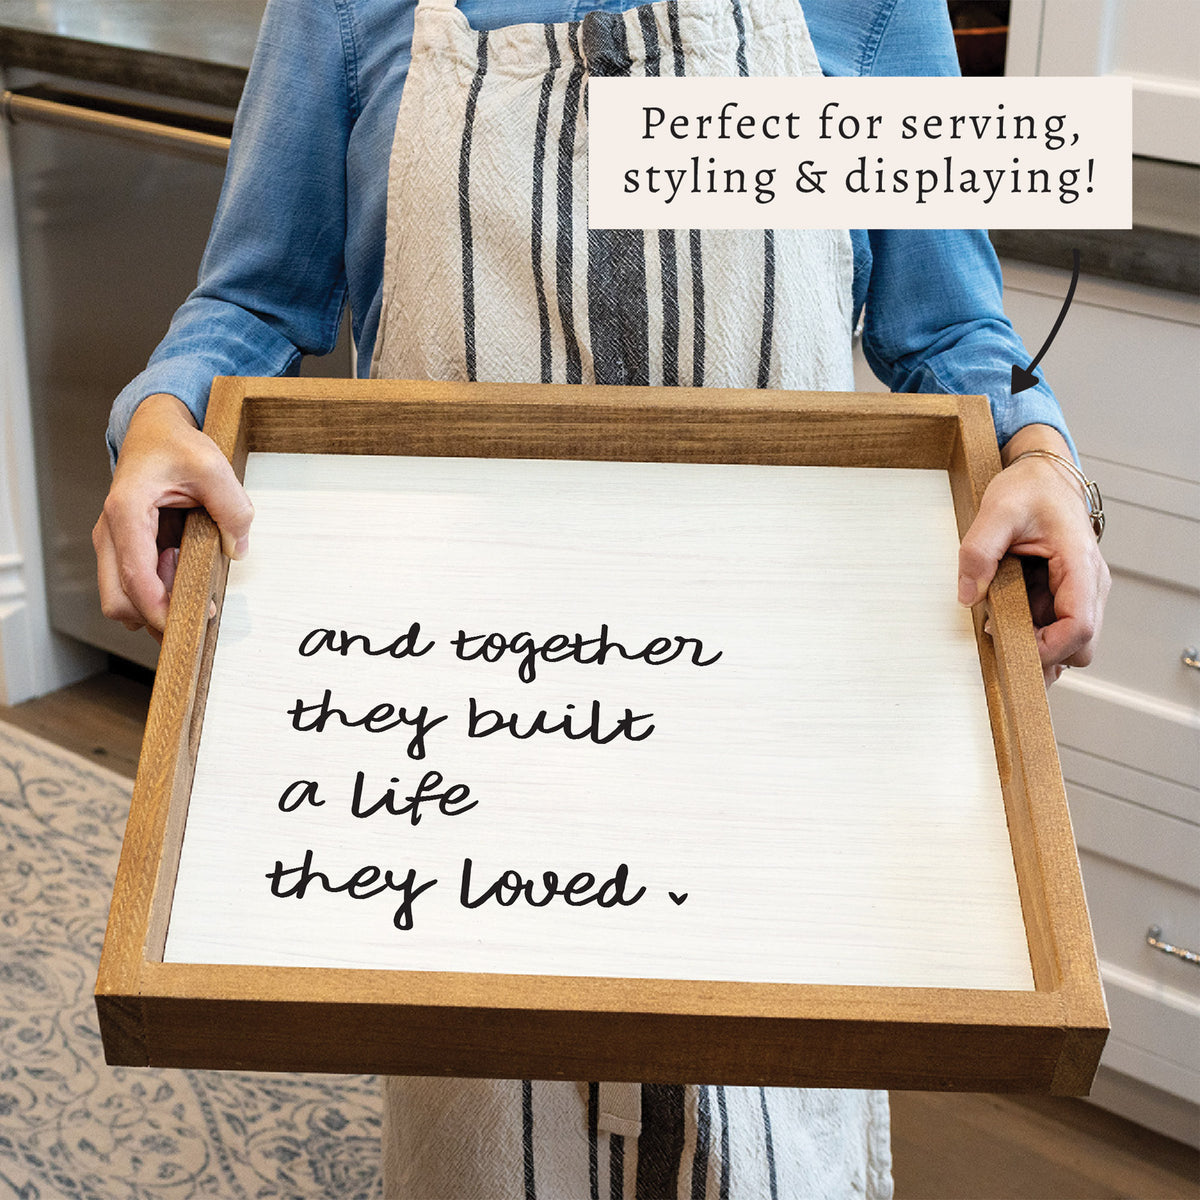 Perfect for serving,
styling & displaying!
and together
they built
a life
they loved.